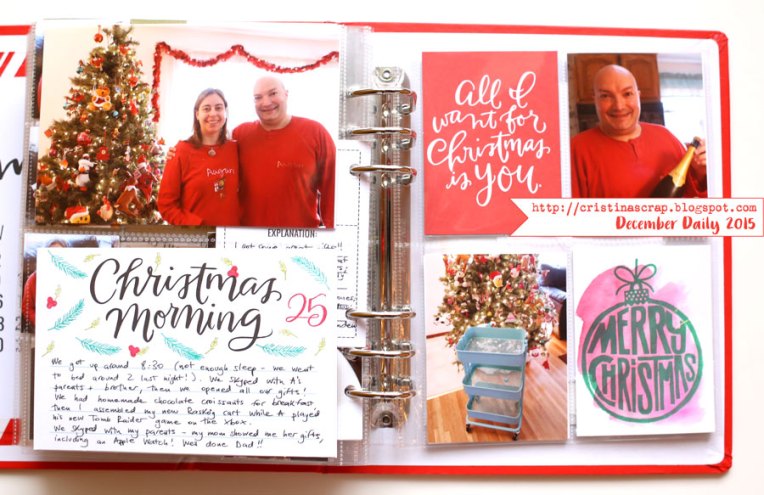 Auguri
Auguri
EXPLANATION:
Christmas
Morning
25
We got up around 8:30 (not enough sleep - we went
to bed around 2 last night!). We skyped with A's
parents + brother, then we opened all our gifts!
We had homemade chocolate croissants for breakfast
then I assembled my new Raskog cart while A played
his new Tomb Raider game on the Xbox.
We skyped with my parents - my mom showed me her gifts,
including an Apple Watch! Well done Dad!!
All I
want for
Christmas
is YOU.
http://cristinascrap.blogspot.com
December Daily 2015
MERRY
CHRISTMAS